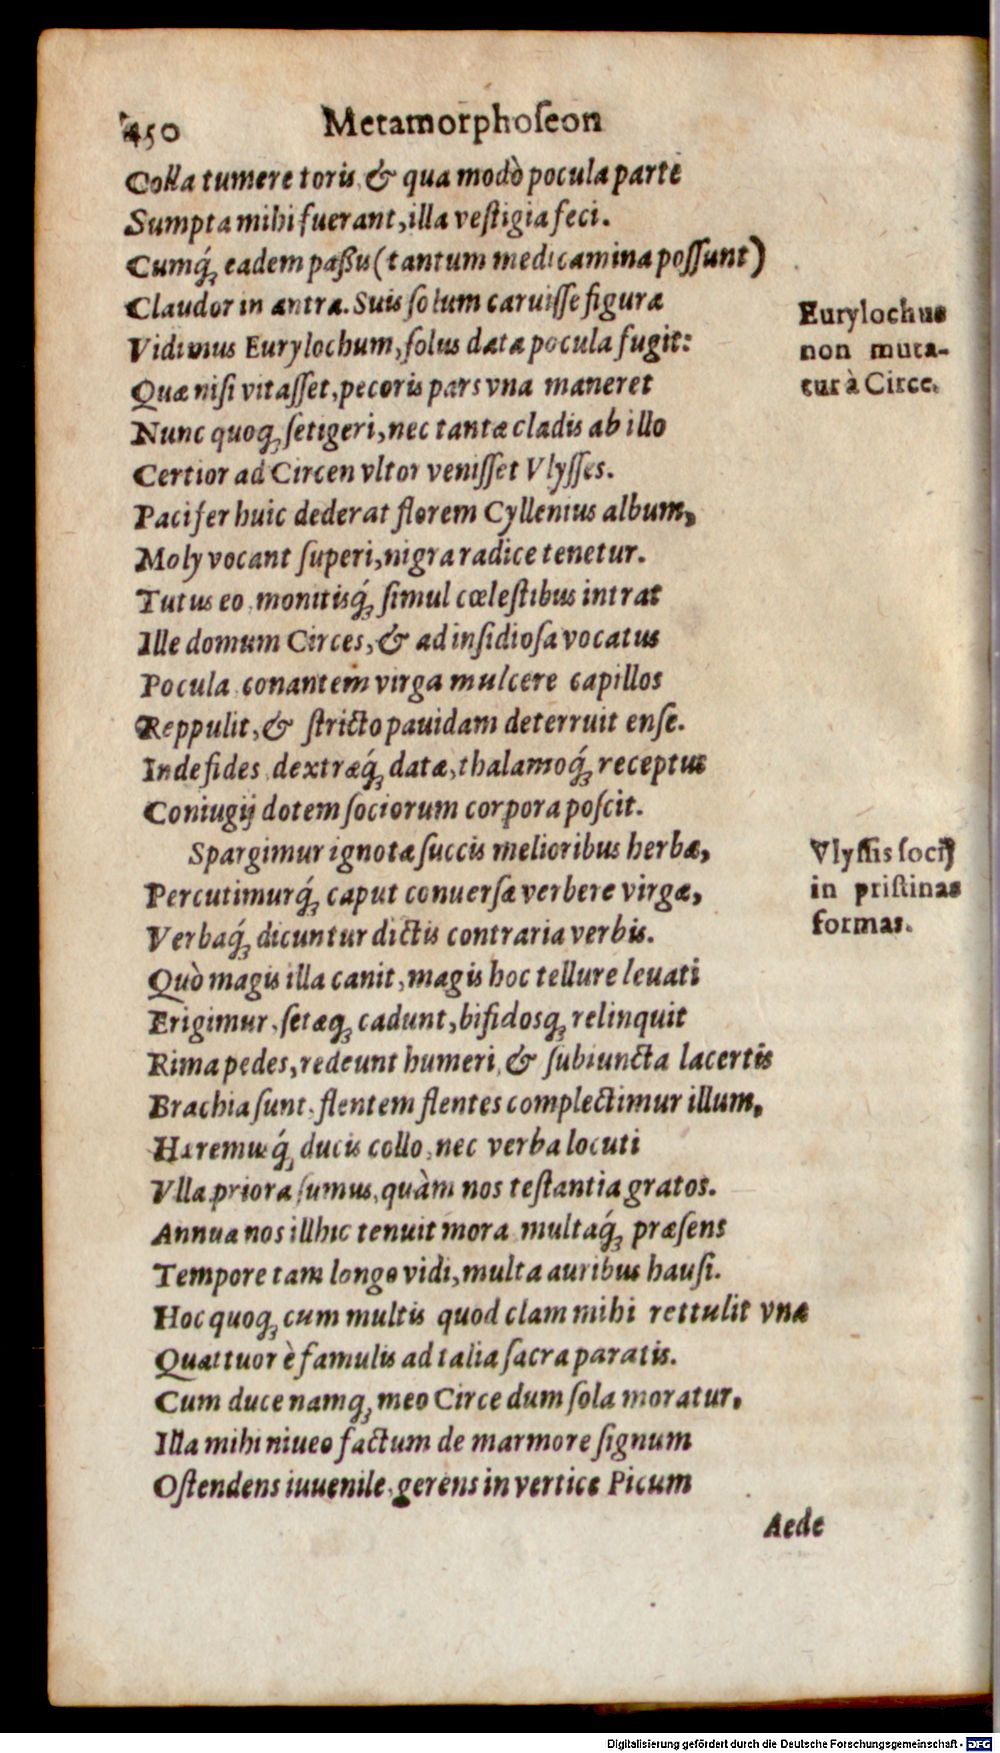 450 Metamorphoſeon
Colla tumere toris, & qua modò pocula parte
Sumpta mihi fuerant, illa veſtigia feci.
Cumq́; eadem paßu (tantum medicamina poſſunt)
Claudor in antra. Suis ſolum caruiſſe figura
Vidimus Eurylochum, ſolus data pocula fugit:
Quæ niſi vitaſſet, pecoris pars vna maneret
Nunc quoq; ſetigeri, nec tantæ cladis ab illo
Certior ad Circen vltor veniſſet Vlyſſes.
Pacifer huic dederat florem Cyllenius album,
Moly vocant ſuperi, nigra radice tenetur.
Tutus eo, monitisq́; ſimul cœleſtibus intrat
Ille domum Circes, & ad inſidioſa vocatus
Pocula, conantem virga mulcere capillos
Reppulit, & ſtricto pauidam deterruit enſe.
Inde fides, dextræq́; datæ, thalamoq́; receptus
Coniugij dotem ſociorum corpora poſcit.
Spargimur ignotæ ſuccis melioribus herbæ,
Percutimurq́; caput conuerſæ verbere virgæ,
Verbaq́; dicuntur dictis contraria verbis.
Quò magis illa canit, magis hoc tellure leuati
Erigimur, ſetæq; cadunt, bifidosq; relinquit
Rima pedes, redeunt humeri, & ſubiuncta lacertis
Brachia ſunt, flentem flentes complectimur illum,
Hæremusq́; ducis collo, nec verba locuti
Vlla priora ſumus, quàm nos teſtantia gratos.
Annua nos illhic tenuit mora, multaq́; præſens
Tempore tam longo vidi, multa auribus hauſi.
Hoc quoq; cum multis quod clam mihi rettulit vna
Quattuor è famulis ad talia ſacra paratis.
Cum duce namq; meo Circe dum ſola moratur,
Illa mihi niueo factum de marmore ſignum
Oſtendens iuuenile, gerens in vertice Picum
Aede
Eurylochus
non muta-
tur à Circe.
Vlyſſis ſocij
in priſtinas
formas.
Digitalisierung gefördert durch die Deutsche Forschungsgemeinschaft - DFG